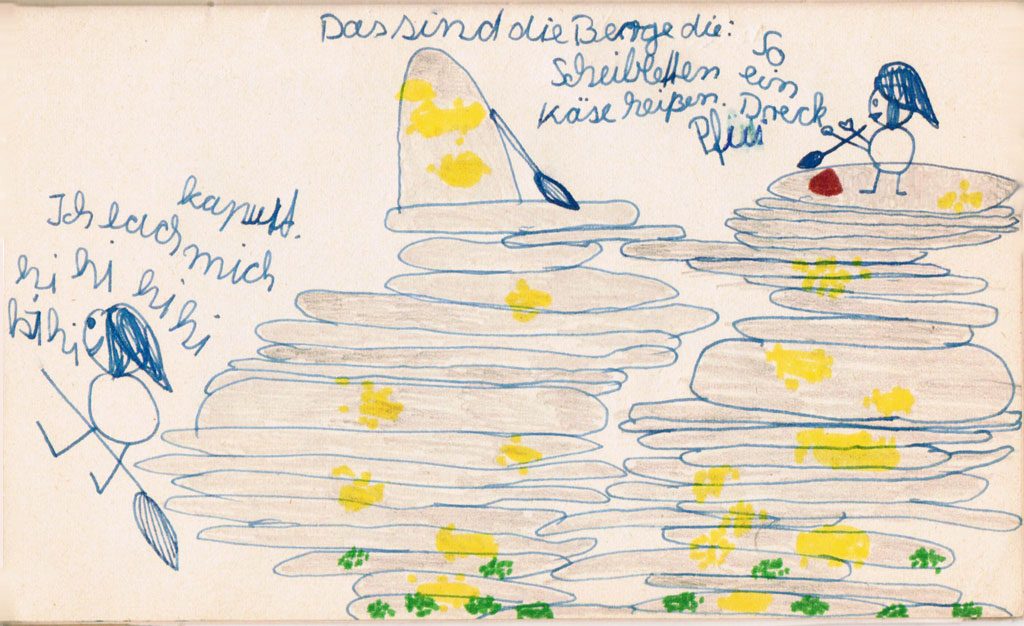 Das sind die Berge die:
Scheibletten
Käse heißen.
So
ein
Dreck
Pfui
Ich lach mich
kaputt.
hi hi hi hi
hi hi